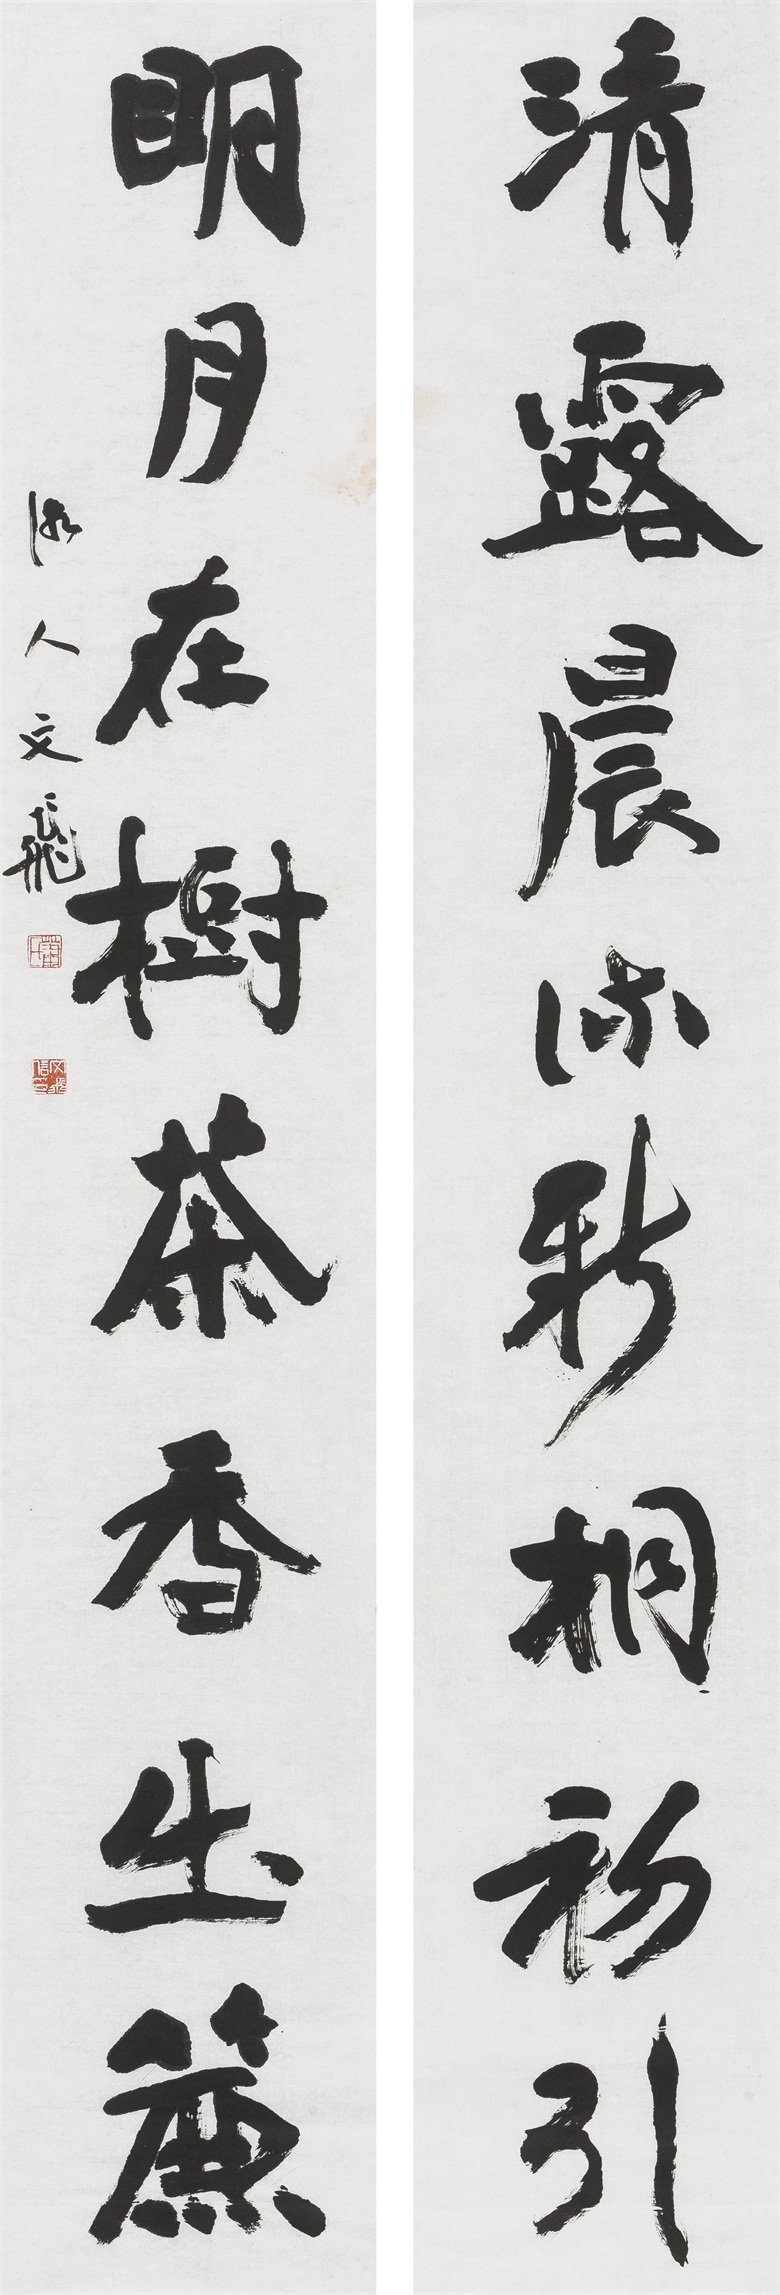 清露晨流新桐初引
明月在樹茶香出簾
人文飛